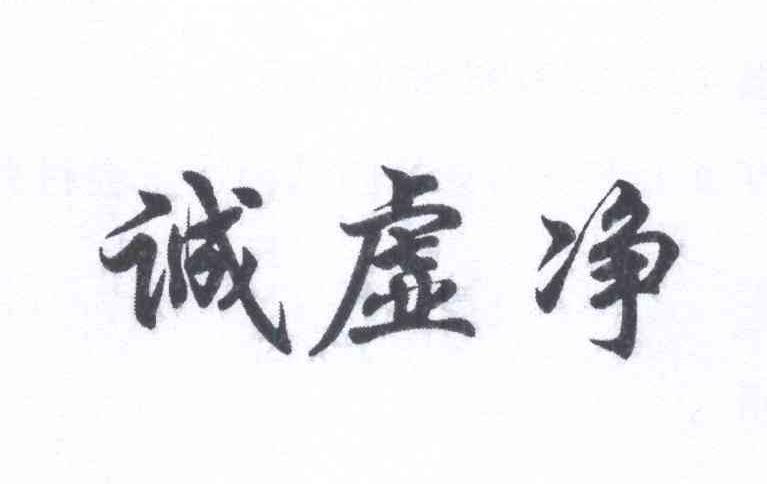 诚虚净